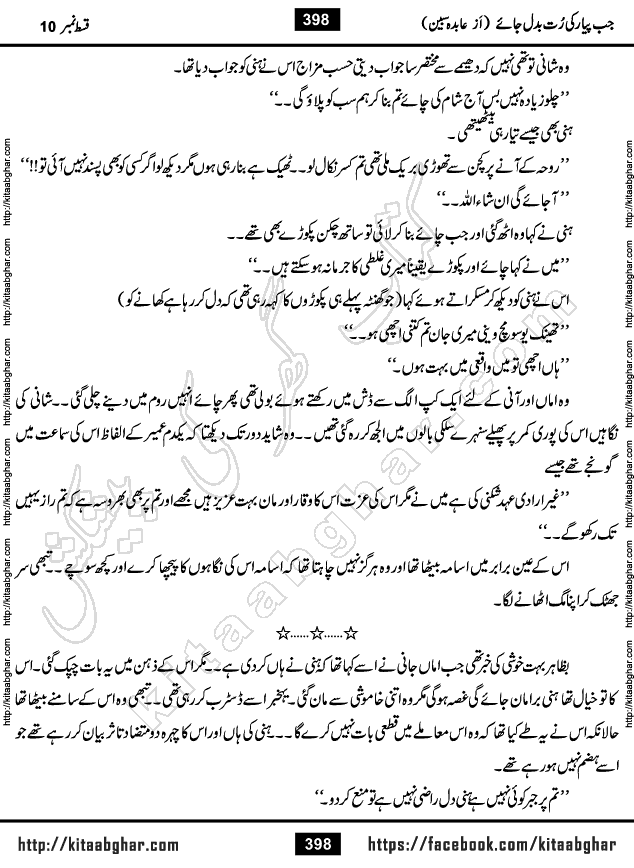 جب پیار کی رُت بدل جائے (اَز عابدہ سبین) 398 قسط نمبر 10
وہ شانی تو تھی نہیں کہ دھیمے سے مختصر سا جواب دیتی حسب مزاج اس نے ہنی کو جواب دیا تھا۔
’’چلو زیادہ نہیں بس آج شام کی چائے تم بنا کر ہم سب کو پلاؤ گی۔۔‘‘
ہنی بھی جیسے تیار ہی بیٹھی تھی۔
’’روحہ کے آنے پر کچن سے تھوڑی بریک ملی تھی تم کسر نکال لو۔۔ ٹھیک ہے بنا رہی ہوں مگر دیکھ لو اگر کسی کو بھی پسند نہیں آئی تو!!‘‘
’’آ جائے گی ان شاء اللہ۔۔‘‘
ہنی نے کہا وہ اٹھ گئی اور جب چائے بنا کر لائی تو ساتھ چکن پکوڑے بھی تھے۔۔
’’میں نے کہا چائے اور پکوڑے یقیناً میری غلطی کا جرمانہ ہو سکتے ہیں۔۔‘‘
اس نے ہنی کو دیکھ کر مسکراتے ہوئے کہا (جو گھنٹہ پہلے ہی پکوڑوں کا کہہ رہی تھی کہ دل کر رہا ہے کھانے کو)
’’تھینک یو سو مچ وینی میری جان تم کتنی اچھی ہو۔۔‘‘
’’ہاں اچھی تو میں واقعی میں بہت ہوں۔‘‘
وہ اماں اور آنی کے لئے ایک کپ الگ سے ڈش میں رکھتے ہوئے بولی تھی پھر چائے انہیں روم میں دینے چلی گئی۔۔ شانی کی
نگاہیں اس کی پوری کمر پر پھیلے سنہرے سلکی بالوں میں الجھ کر رہ گئی تھیں۔۔ وہ شاید دور تک دیکھتا کہ یکدم عمیر کے الفاظ اس کی سماعت میں
گونجے تھے جیسے
’’غیر ارادی عہد شکنی کی ہے میں نے مگر اس کی عزت اس کا وقار اور مان بہت عزیز ہیں مجھے اور تم پر بھی بھروسہ ہے کہ تم راز یہیں
تک رکھو گے۔۔‘‘
اس کے عین برابر میں اسامہ بیٹھا تھا اور وہ ہرگز نہیں چاہتا تھا کہ اسامہ اس کی نگاہوں کا پیچھا کرے اور کچھ سوچے۔۔ تبھی سر
جھٹک کر اپنا مگ اٹھانے لگا۔
☆……☆……☆
بظاہر بہت خوشی کی خبر تھی جب اماں جانی نے اسے کہا تھا کہ ہنی نے ہاں کر دی ہے۔۔ مگر اس کے ذہن میں یہ بات چپک گئی۔ اس
کا تو خیال تھا ہنی برا مان جائے گی غصہ ہو گی مگر وہ اتنی خاموشی سے مان گئی۔ یہ خبر اسے ڈسٹرب کر رہی تھی۔۔ تبھی وہ اس کے سامنے بیٹھا تھا
حالانکہ اس نے یہ طے کیا تھا کہ وہ اس معاملے میں قطعی بات نہیں کرے گا۔۔۔ ہنی کی ہاں اور اس کا چہرہ دو متضاد تاثر بیان کر رہے تھے جو
اسے ہضم نہیں ہو رہے تھے۔
’’تم پر جبر کوئی نہیں ہے ہنی دل راضی نہیں ہے تو منع کر دو۔‘‘
http://kitaabghar.com 398 https://facebook.com/kitaabghar
http://kitaabghar.com http://kitaabghar.com http://kitaabghar.com http://kitaabghar.com http://kitaabghar.com http://kitaabghar.com
http://kitaabghar.com http://kitaabghar.com http://kitaabghar.com http://kitaabghar.com http://kitaabghar.com http://kitaabghar.com
کتاب گھر کی پیشکش
kitaabghar.com